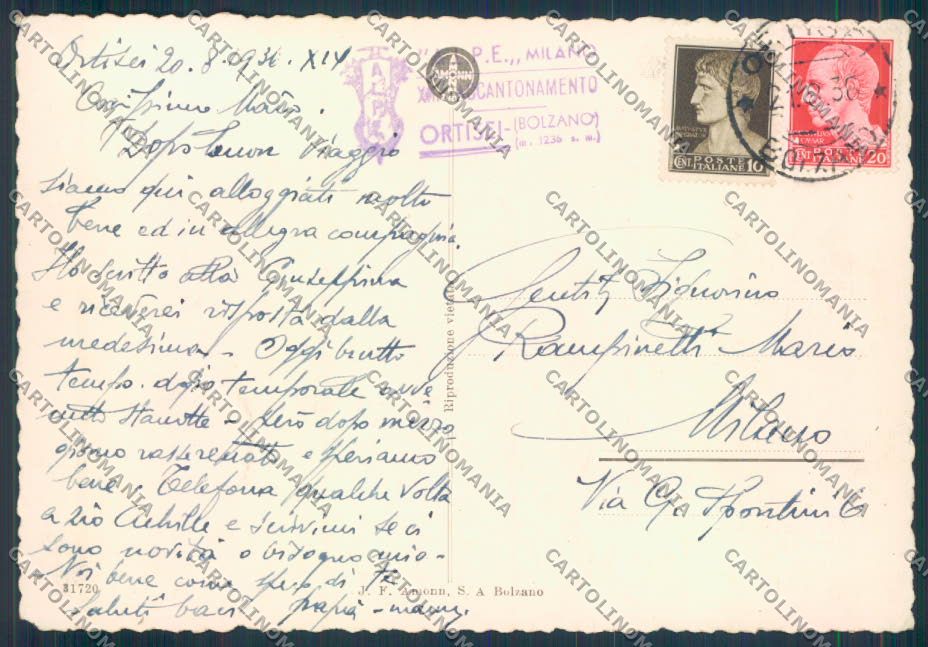 Ortisei 20.8.936. XIV
Carissimo Mario.
Dopo buon viaggio
siamo qui alloggiati molto
bene ed in allegra compagnia.
Ho scritto alla Giuseppina
e riceverei risposta dalla
medesima - Oggi brutto
tempo. dopo temporale avve
nuto stanotte - però dopo mezzo
giorno rasserenato e speriamo
bene. Telefona qualche volta
a zio Achille e scrivimi se ci
sono novità o bisogno mio -
Noi bene come spero di Te
saluti baci papà - mamy.
31720
A.L.P.E.
"A.L.P.E.,, MILANO
ACCANTONAMENTO
ORTISEI - (BOLZANO)
(m. 1236 s. m.)
AMONN
POSTE ITALIANE
CENT 10
CAESAR
POSTE ITALIANE
CENT 20
Gentil Signorino
Rampinelli Mario
Milano
Via G. Spontini 6
Riproduzione vietata
J. F. Amonn, S. A Bolzano
CARTOLINOMANIA